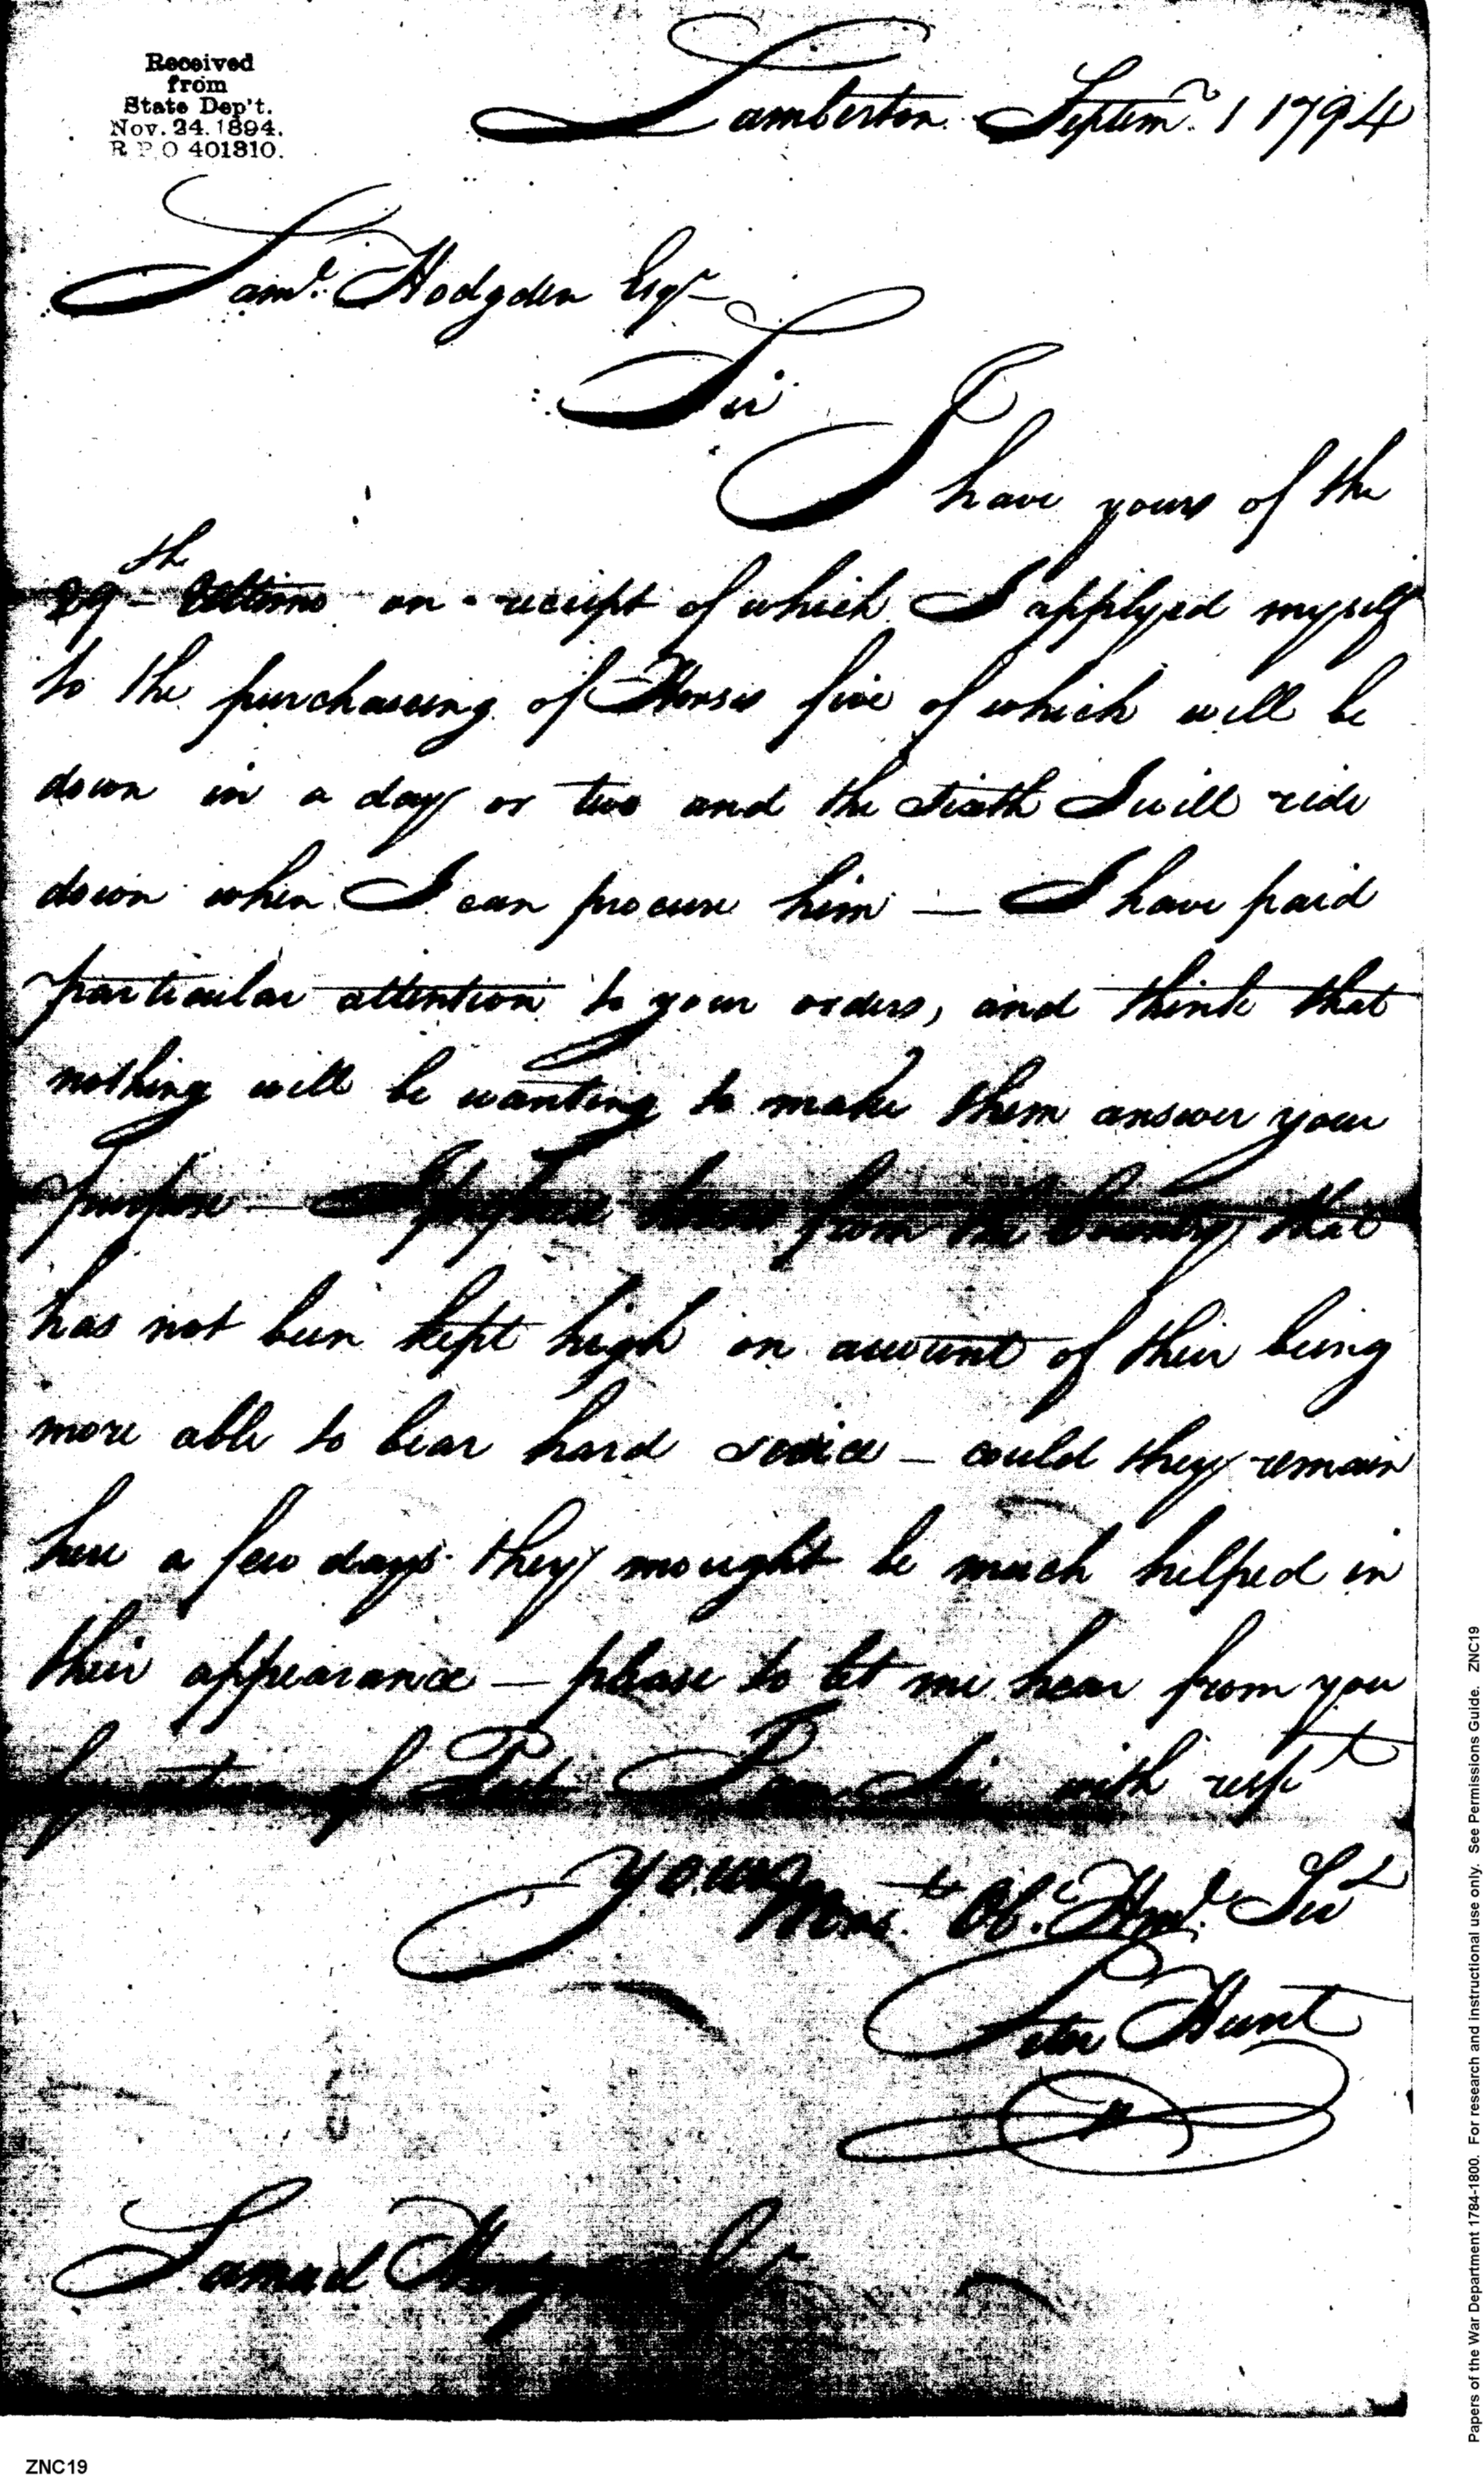 Received
from
State Dep't.
Nov. 24. 1894.
R P O 401810.
Lamberton Septemr. 1 1794
Saml. Hodgden Esqr
Sir
I have yours of the
29th Ultimo on receipt of which I applyed myself
to the purchasing of Horses five of which will be
down in a day or two and the sixth I will ride
down when I can procure him — I have paid
particular attention to your orders, and think that
nothing will be wanting to make them answer your
purpose — I horses from the Country that
has not been kept high on account of their being
more able to bear hard service — could they remain
here a few days they mought be much helped in
their appearance — please to let me hear from you
by return of Post I am Sir with respt
yours
Mos. to Obt. Hml. Sert
Peter Hunt
Samuel Hodgden Esqr
ZNC19
Papers of the War Department 1784-1800. For research and instructional use only. See Permissions Guide. ZNC19